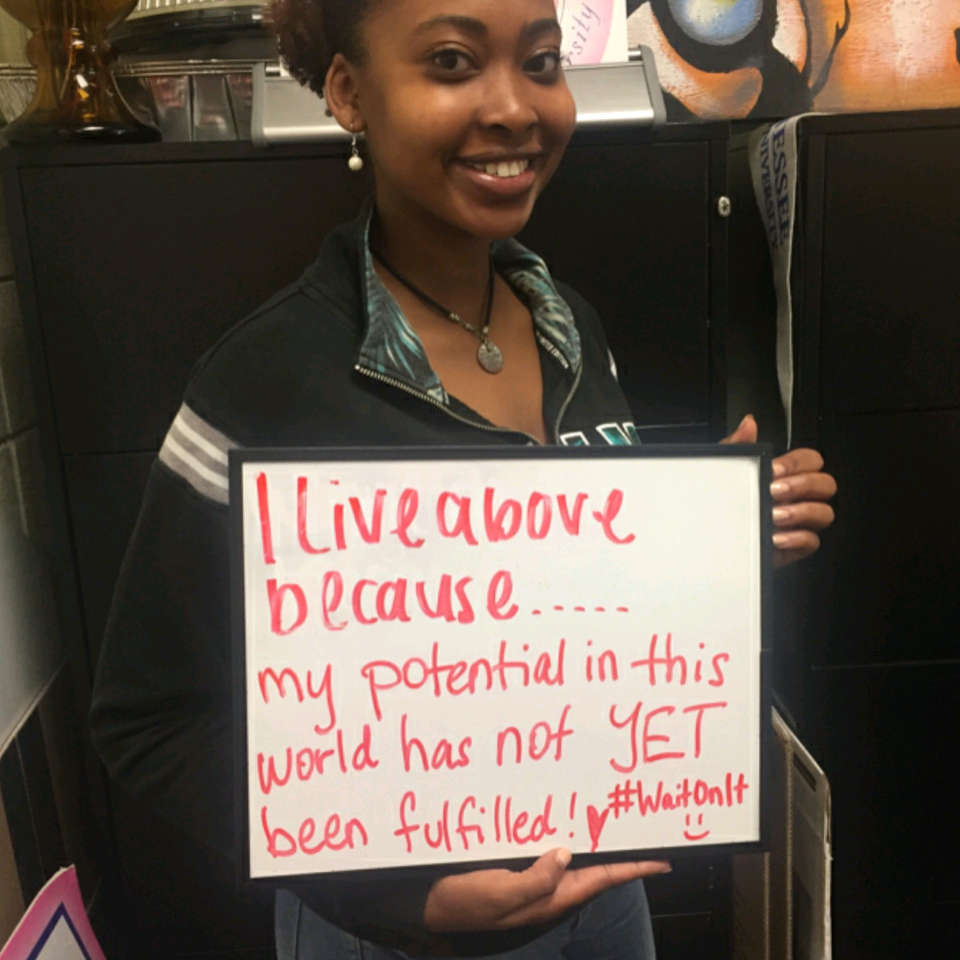 ersity
ESSEE
IVERSITY
I Live above
because.....
my potential in this
world has not YET
been fulfilled! #WaitOnIt